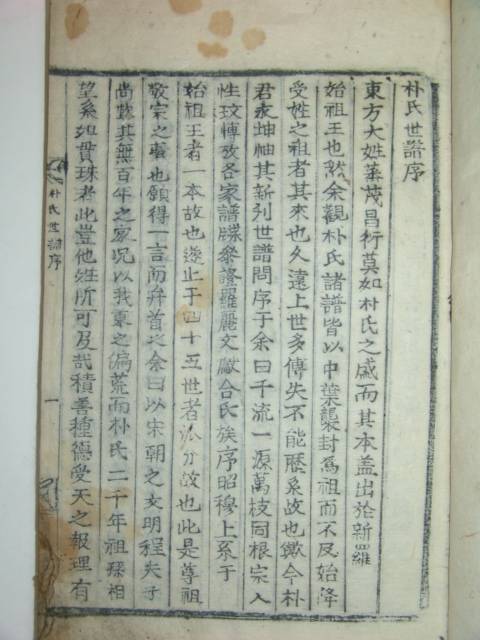 朴氏世譜序
東方大姓華茂昌衍莫如朴氏之盛而其本盖出於新羅
始祖王也然余觀朴氏諸譜皆以中葉襲封爲祖而不及始降
受姓之祖者其來也久遠上世多傳失不能歷系故也歲今朴
君永坤袖其新刋世譜問序于余曰千流一源萬枝同根宗人
性玟博攷各家譜牒叅證羅麗文獻合氏族序昭穆上系于
始祖王者一本故也遂止于四十五世者派分故也此是尊祖
敬宗之事也願得一言而弁首之余曰以宋朝之文明程夫子
尚歎其無百年之家况以我東之偏荒而朴氏二千年祖孫相
望系如貫珠者此豈他姓所可及哉積善種德受天之報理有
朴氏世譜序
一